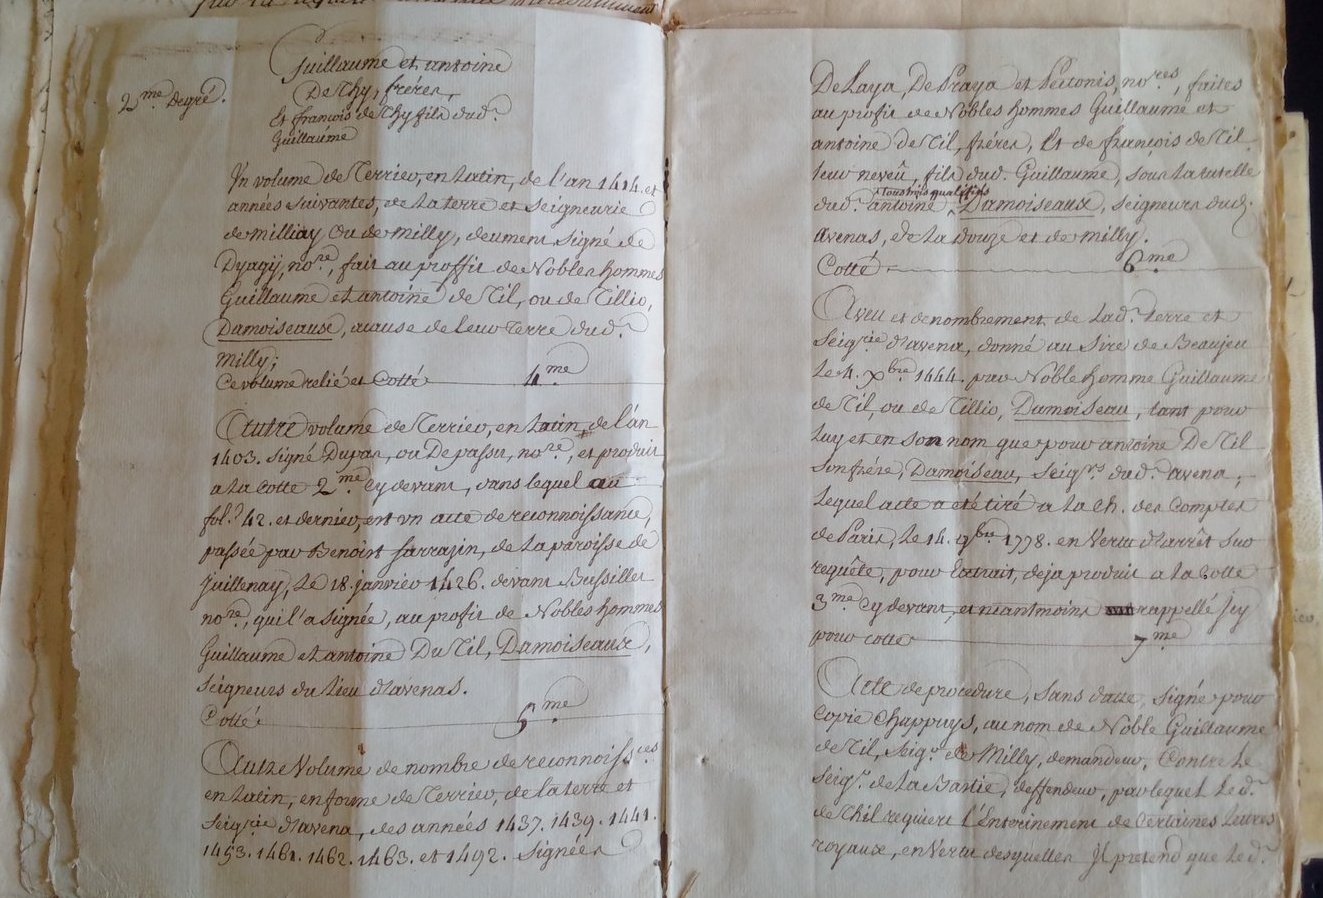 2.me degré.
Guillaume et antoine
De Thy, fréres,
Et françois de Thy fils dud.t
Guillaume
Un volume de Terrier, en Latin, de l'an 1414. et
années suivantes, de La terre et Seigneurie
de milliay ou de milly, deument signé de
Dyagÿ, no.re, fait au proffit de Nobles hommes
Guillaume et antoine de Til, ou de Tillio,
Damoiseaux, acause de leur Terre dud.t
milly;
Ce volume relié et Cotté 4.me
Autre volume de Terrier, en Latin, de l'an
1403. signé Dupas, ou De passu, no.re, et produit
a La Cotte 2.me Cy devant, dans lequel au
fol.o 42. et dernier, est un acte de reconnoissance,
passée par Benoist Sarrajin, de La paroisse de
Juillenay, Le 18. janvier 1426. devant Bussilles
no.re, qui l'a signée, au profit de Nobles hommes
Guillaume et antoine Du Til, Damoiseaux,
seigneurs du Lieu d'avenas.
Cotté 5.me
Autre Volume de nombre de reconnoiss.ces
en Latin, en forme de Terrier, de la terre et
Seig.rie d'avena, des années 1437. 1439. 1441.
1453. 1461. 1462. 1463. et 1492. Signées
De Laya, De Praya et Petonis, no.res, faites
au profit de Nobles hommes Guillaume et
antoine de Til, fréres, Et de françois de Til
leur neveû, fils dud. Guillaume, sous La tutelle
tous trois qualifiés
dud.t antoine Damoiseaux, seigneurs dud.
avenas, de La douze et de milly.
Cotté 6.me
Aveu et denombrement de Lad.t terre et
Seig.rie d'avena, donné au Sire de Beaujeu
Le 4. Xbre 1444. par Noble homme Guillaume
de Til, ou de Tillio, Damoiseau, tant pour
Luy et en son nom que pour antoine De Til
son frére, Damoiseau, Seig.rs dud.t avena,
Lequel acte a été tiré a la Ch. des Comptes
de Paris, Le 14. 9bre 1778. en Vertu d'arrêt sur
requête, pour Extrait, deja produit a la Cotte
3.me Cy devant, et néantmoins rappellé Icy
pour cotte 7.me
Acte de procedure, sans datte, signé pour
Copie Chappuys, au nom de Noble Guillaume
de Til, Seig.r de Milly, demandeur, Contre Le
Seig.r de La Bastie, deffendeur, par lequel Le d.t
de Thil requiert l'Enterinement de Certaines Lettres
royaux, en Vertu desquelles Il pretend que Le d.t